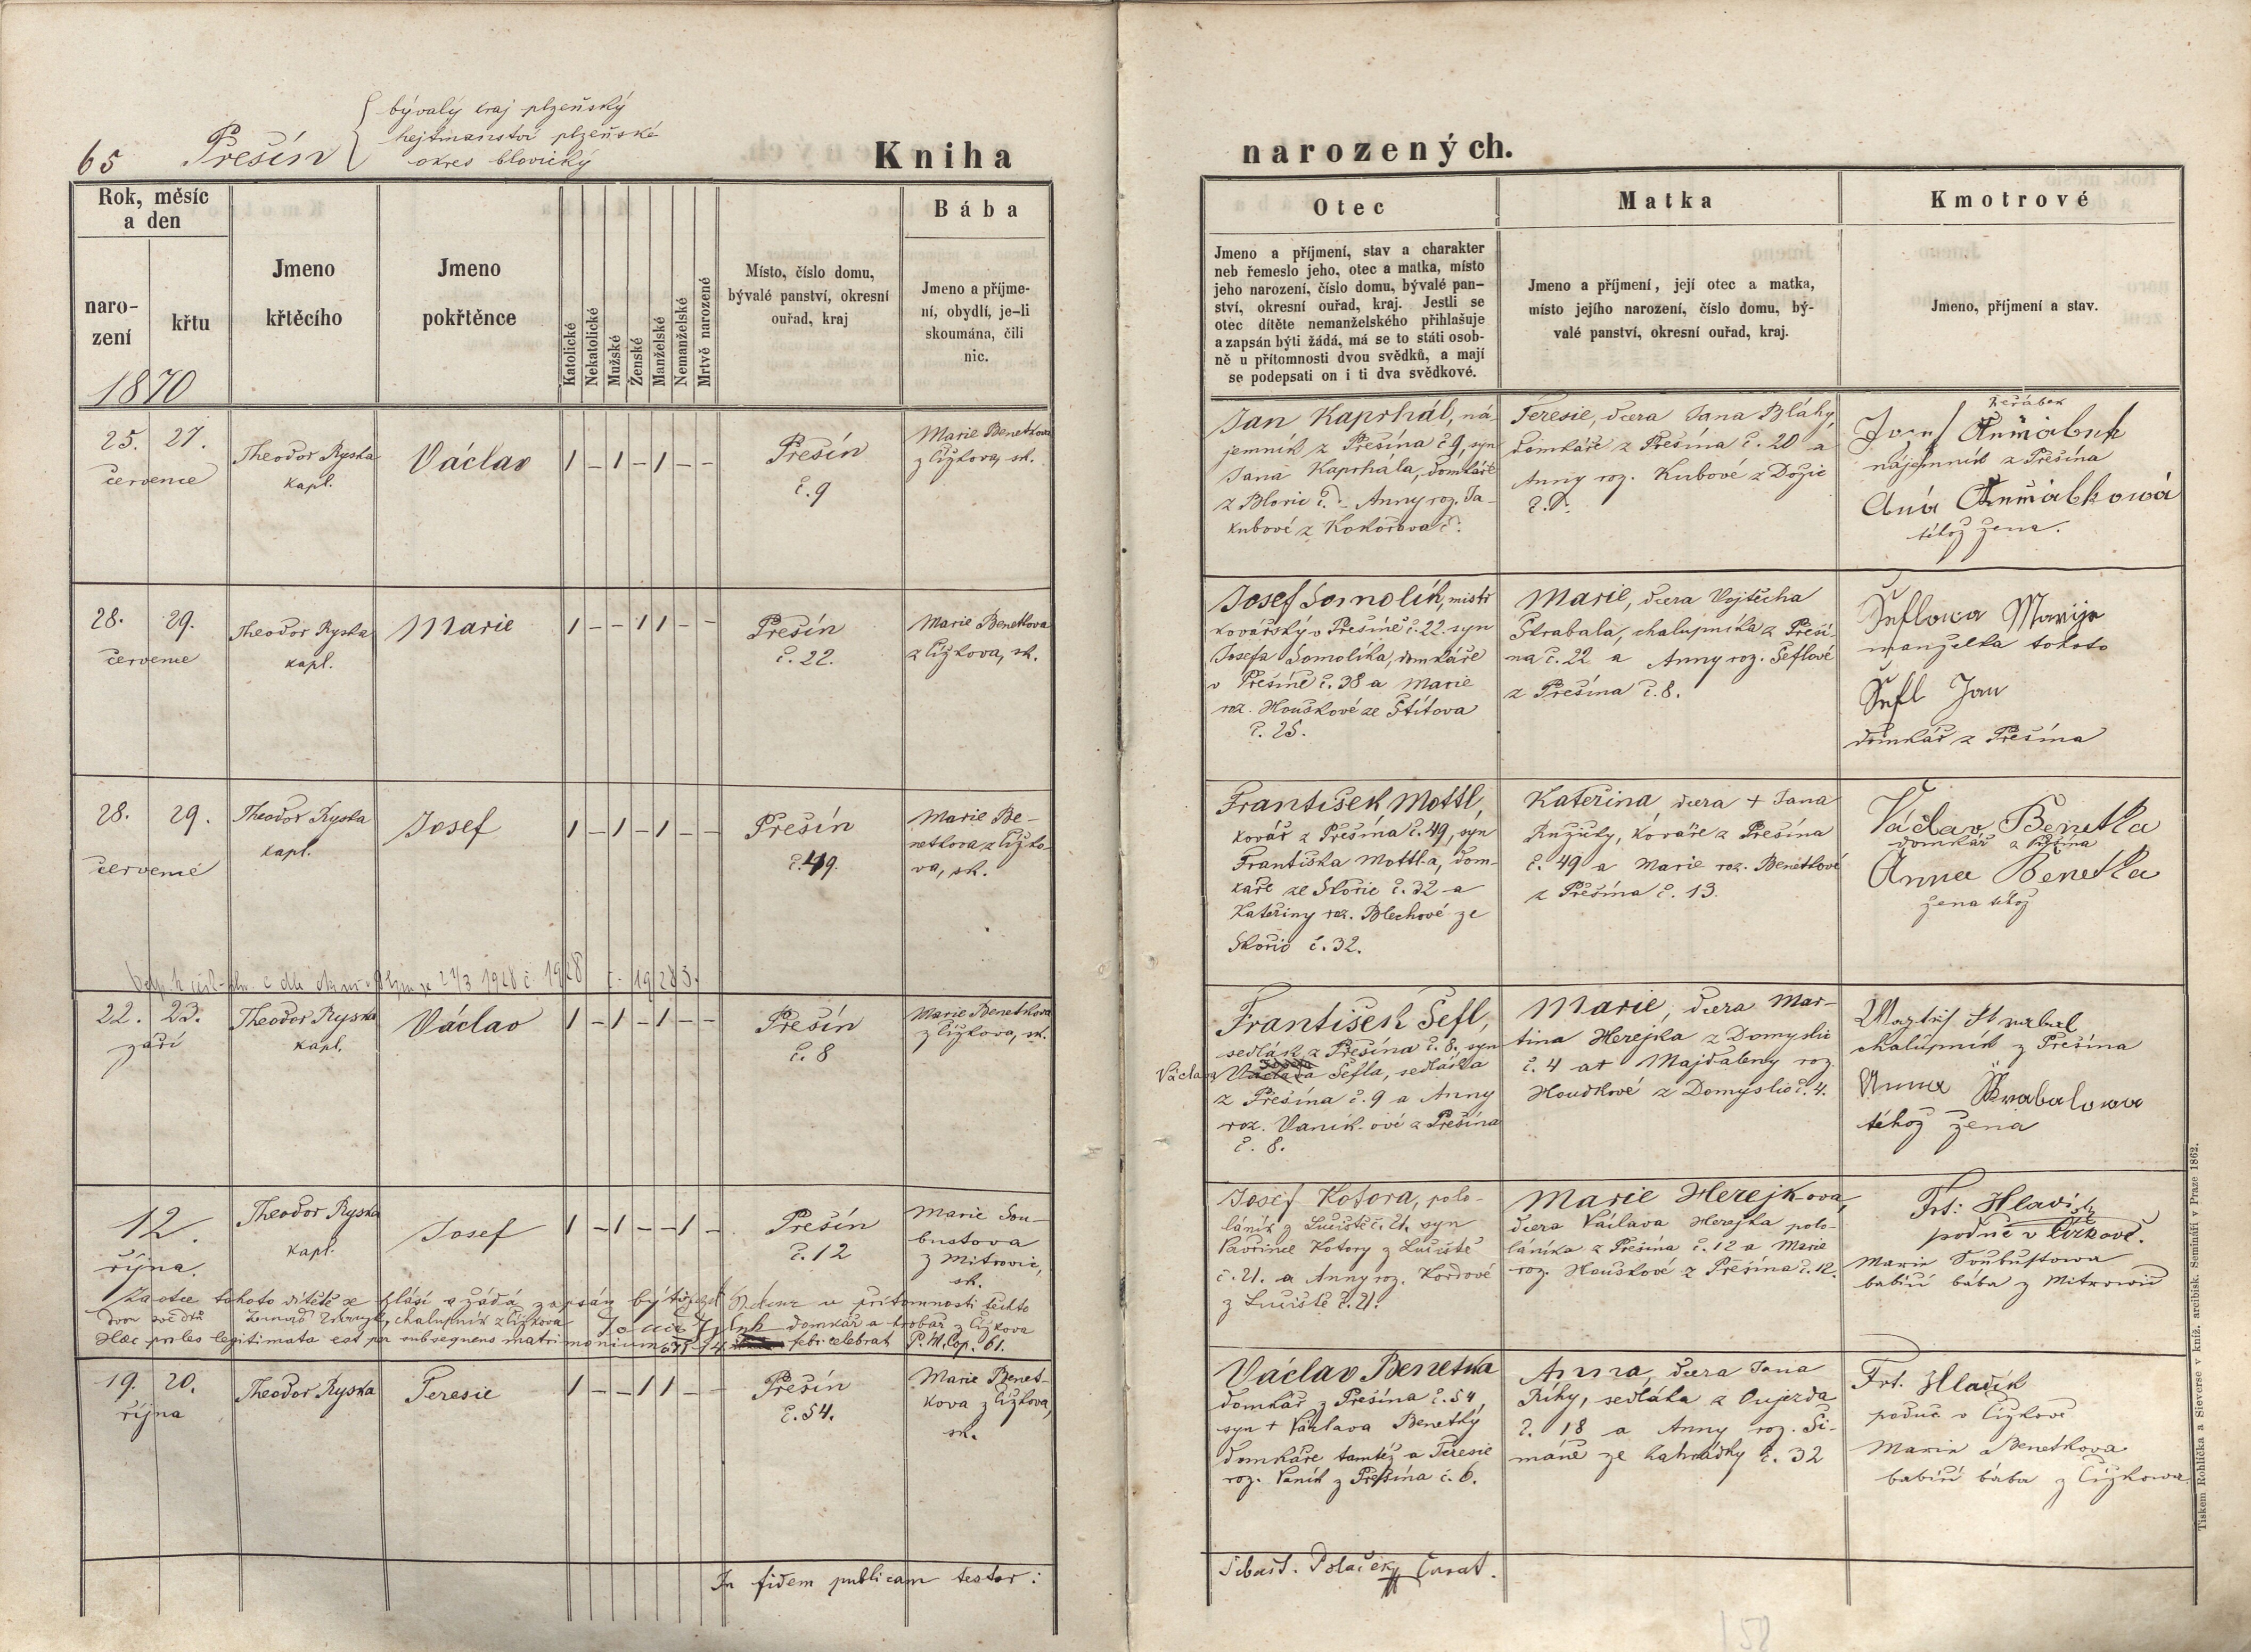 65 Přešín
bývalý kraj plzeňský
hejtmanství plzeňské
okres blovický
Kniha
narozených.
Rok, měsíc
a den
naro-
zení
křtu
1870
Jmeno
křtěcího
Jmeno
pokřtěnce
Katolické
Nekatolické
Mužské
Ženské
Manželské
Nemanželské
Mrtvě narozené
Místo, číslo domu,
bývalé panství, okresní
ouřad, kraj
Bába
Jmeno a příjme-
ní, obydlí, je-li
skoumána, čili
nic.
Otec
Jmeno a příjmení, stav a charakter
neb řemeslo jeho, otec a matka, místo
jeho narození, číslo domu, bývalé pan-
ství, okresní ouřad, kraj. Jestli se
otec dítěte nemanželského přihlašuje
a zapsán býti žádá, má se to státi osob-
ně u přítomnosti dvou svědků, a mají
se podepsati on i ti dva svědkové.
Matka
Jmeno a příjmení, její otec a matka,
místo jejího narození, číslo domu, bý-
valé panství, okresní ouřad, kraj.
Kmotrové
Jmeno, příjmení a stav.
25. 27.
července
Theodor Ryska
kapl.
Václav
1 – 1 – 1 – –
Přešín
č. 9
Marie Benetkova
z Čížkova, sk.
Jan Kaprhál, ná-
jemník z Přešína č. 9, syn
Jana Kaprhála, domkáře
z Blovic č. – Anny roz. Ja-
kubové z Kokořova č.
Teresie, dcera Jana Bláhy,
domkáře z Přešína č. 20 a
Anny roz. Kubové z Dožic
č.
Jeřábek
nájemník z Přešína
téhož žena.
28. 29.
července
Theodor Ryska
kapl.
Marie
1 – – 1 1 – –
Přešín
č. 22.
Marie Benetkova
z Čížkova, sk.
Josef Somolík, mistr
kovářský v Přešíně č. 22. syn
Josefa Somolíka, domkáře
v Přešíně č. 38 a Marie
roz. Houškové ze Štítova
č. 25.
Marie, dcera Vojtěcha
Škrabala, chalupníka z Přeší-
na č. 22 a Anny roz. Šeflové
z Přešína č. 8.
Šeflowa Marije
manželka tohoto
Šefl Jan
domkář z Přešína
28. 29.
července
Theodor Ryska
kapl.
Josef
1 – 1 – 1 – –
Přešín
č. 49.
Marie Be-
netkova z Čížko-
va, sk.
František Mottl,
kovář z Přešína č. 49, syn
Františka Mottla, dom-
káře ze Skořic č. 32 a
Kateřiny roz. Blechové ze
Skořic č. 32.
Kateřina dcera + Jana
Růžičky, kováře z Přešína
č. 49 a Marie roz. Benetkové
z Přešína č. 13.
Václav Benetka
domkář z Přešína
Anna Benetka
žena téhož
22. 23.
září
Theodor Ryska
kapl.
Václav
1 – 1 – 1 – –
Přešín
č. 8
Marie Benetkova
z Čížkova, sk.
František Šefl,
sedlák z Přešína č. 8, syn
Václava Šefla, sedláka
z Přešína č. 9 a Anny
roz. Vaník-ové z Přešína
č. 8.
Marie, dcera Mar-
tina Herejka z Domyslic
č. 4 a Majdaleny roz.
Houdkové z Domyslic č. 4.
chalupník z Přešína
Anna Škrabalowa
téhož žena
12.
října.
Theodor Ryska
kapl.
Josef
1 – 1 – – 1 –
Přešín
č. 12
Marie Sou-
bustova
z Mitrovic,
sk.
Josef Kotora, polo-
láník z Lučiště č. 21. syn
Vavřince Kotory z Lučiště
č. 21. a Anny roz. Kordové
z Lučiště č. 21.
Marie Herejk-ová,
dcera Václava Herejka polo-
láníka z Přešína č. 12 a Marie
roz. Houškové z Přešína č. 12.
Frt: Hlavi
poduč v Čížkově.
Marie Soubustowa
babící bába z Mitrowic
Za otce tohoto dítěte se hlásí a žádá zapsán býti v přítomnosti těchto
dvou svědků chalupník z Čížkova domkář a z Čížkova
Haec proles legitimata est per subsequens matrimonium 14 febr celebrat P. M. Cop. 61.
19. 20.
října
Theodor Ryska
Teresie
1 – – 1 1 – –
Přešín
č. 54.
Marie Benet-
kova z Čížkova,
sk.
Václav Benetka
domkář z Přešína č. 54,
syn + Václava Benetky
domkáře tamtéž a Teresie
roz. Vaník z Přešína č. 6.
Anna, dcera Jana
Říhy, sedláka z Oujezda
č. 18 a Anny roz. Ši-
máně ze Zahrádky č. 32
Frt. Hlavík
poduč. v Čížkově
Marie Benetkova
babící bába z Čížkowa.
In fidem publicam testor:
Sebast. Polaček curat.
Tiskem Rohlíčka a Sieverse v kníž. arcibisk. Semináři v Praze 1862.
158